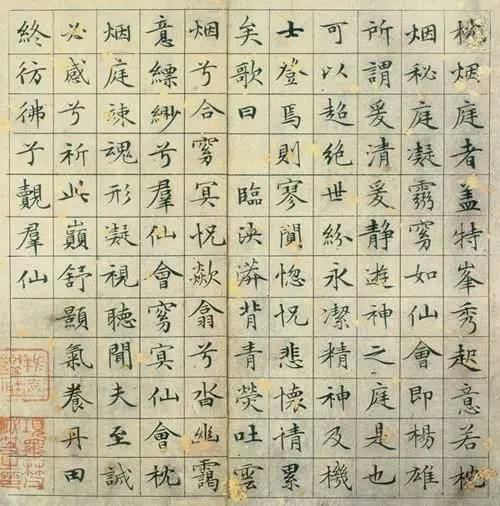 枕烟庭者盖特峯秀起意若枕
烟秘庭凝靈窅如仙會即楊雄
所謂爰清爰靜遊神之庭是也
可以超絕世紛永潔精神及機
士登焉則寥闃惚怳悲懷情累
矣歌曰 臨泱漭背青熒吐雲
烟兮合窅冥怳欻翕兮沓幽靄
意縹緲兮羣仙會窅冥仙會枕
烟庭竦魂形凝視聽聞夫至誠
必感兮祈此巔舒顥氣養丹田
終彷彿乎覿羣仙